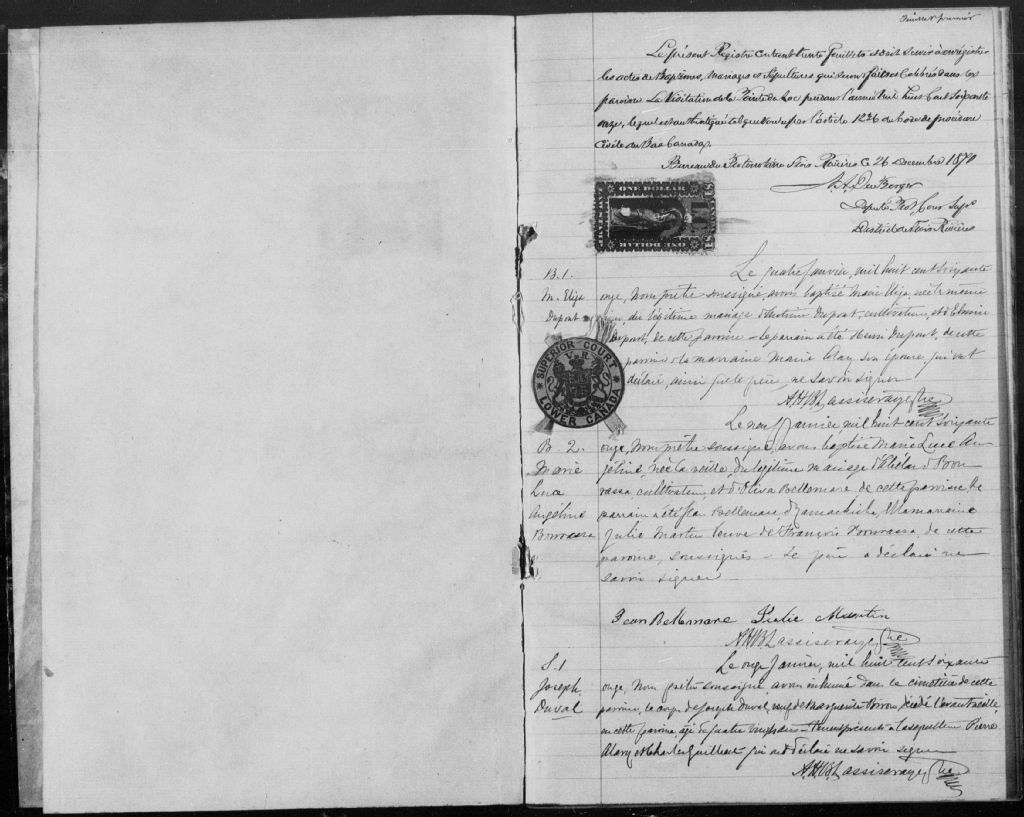 Feuillet premier
Le présent Registre contenant trente feuillets et doit servir à enrégistrer
les actes de Baptêmes, Mariages et Sépultures qui seront faits et célébrés dans la
paroisse La Visitation de la Pointe du Lac pendant l'année mil huit cent soixante
onze, lequel est authentiqué tel que voulu par l'article 1236 du code de procédure
Civile du Bas Canada.
Bureau du Protonotaire Trois Rivières ce 26 Decembre 1870
Député Prot. Cour Supre
District de Trois Rivières
ONE DOLLAR
ONE DOLLAR
SUPERIOR COURT
V R
LOWER CANADA
B. 1.
M. Eliza
Dupont
Le quatre Janvier, mil huit cent soixante
onze, Nous prêtre soussigné, avons baptisé Marie Eliza, née le même
jour, du légitime mariage d'Antoine Dupont, cultivateur, et d'Elmire
Dupont, de cette paroisse – Le parrain a été Henri Dupont, de cette
paroisse & la marraine Marie Alary son épouse, qui ont
déclaré, ainsi que le père, ne savoir signer
Ptre
B. 2.
Marie
Luce
Angéline
Bourassa
Le neuf Janvier mil huit cent soixante
onze, Nous prêtre soussigné, avons baptisé Marie Luce An-
géline, née la veille, du légitime mariage d' Bour-
rassa, cultivateur, et d'Olive Bellemare de cette paroisse, Le
parrain a été Jean Bellemare, d'Yamachiche, & la marraine
Julie Martin veuve de François Bourrassa, de cette
paroisse, soussignés – Le père a déclaré ne
savoir signer –
Jean Bellemare Julie Martin
Ptre
S. 1
Joseph
Duval
Le onze Janvier, mil huit cent soixante
onze, Nous prêtre soussigné avons inhumé dans le cimetière de cette
paroisse, le corps de Joseph Duval, veuf de Marguerite décédé l'avant veille,
en cette paroisse, agé de quatre vingts ans – Etaient présents à la sépulture Pierre
Alary et Charles Guilbert qui ont déclaré ne savoir signer
Ptre